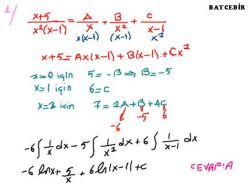 BAYCEBİR
1/
x+5/x²(x-1) = A/x + B/x² + C/x-1
x(x-1) (x-1) x²
x+5 = Ax(x-1) + B(x-1) + Cx²
x=0 için 5 = -B ⇒ B=-5
x=1 için 6 = C
x=2 için 7 = 2A+B+4C
-6 -5 6
-6∫1/x dx - 5∫1/x² dx + 6∫1/x-1 dx
-6 lnx + 5/x + 6 ln|x-1| + c
CEVAP:A